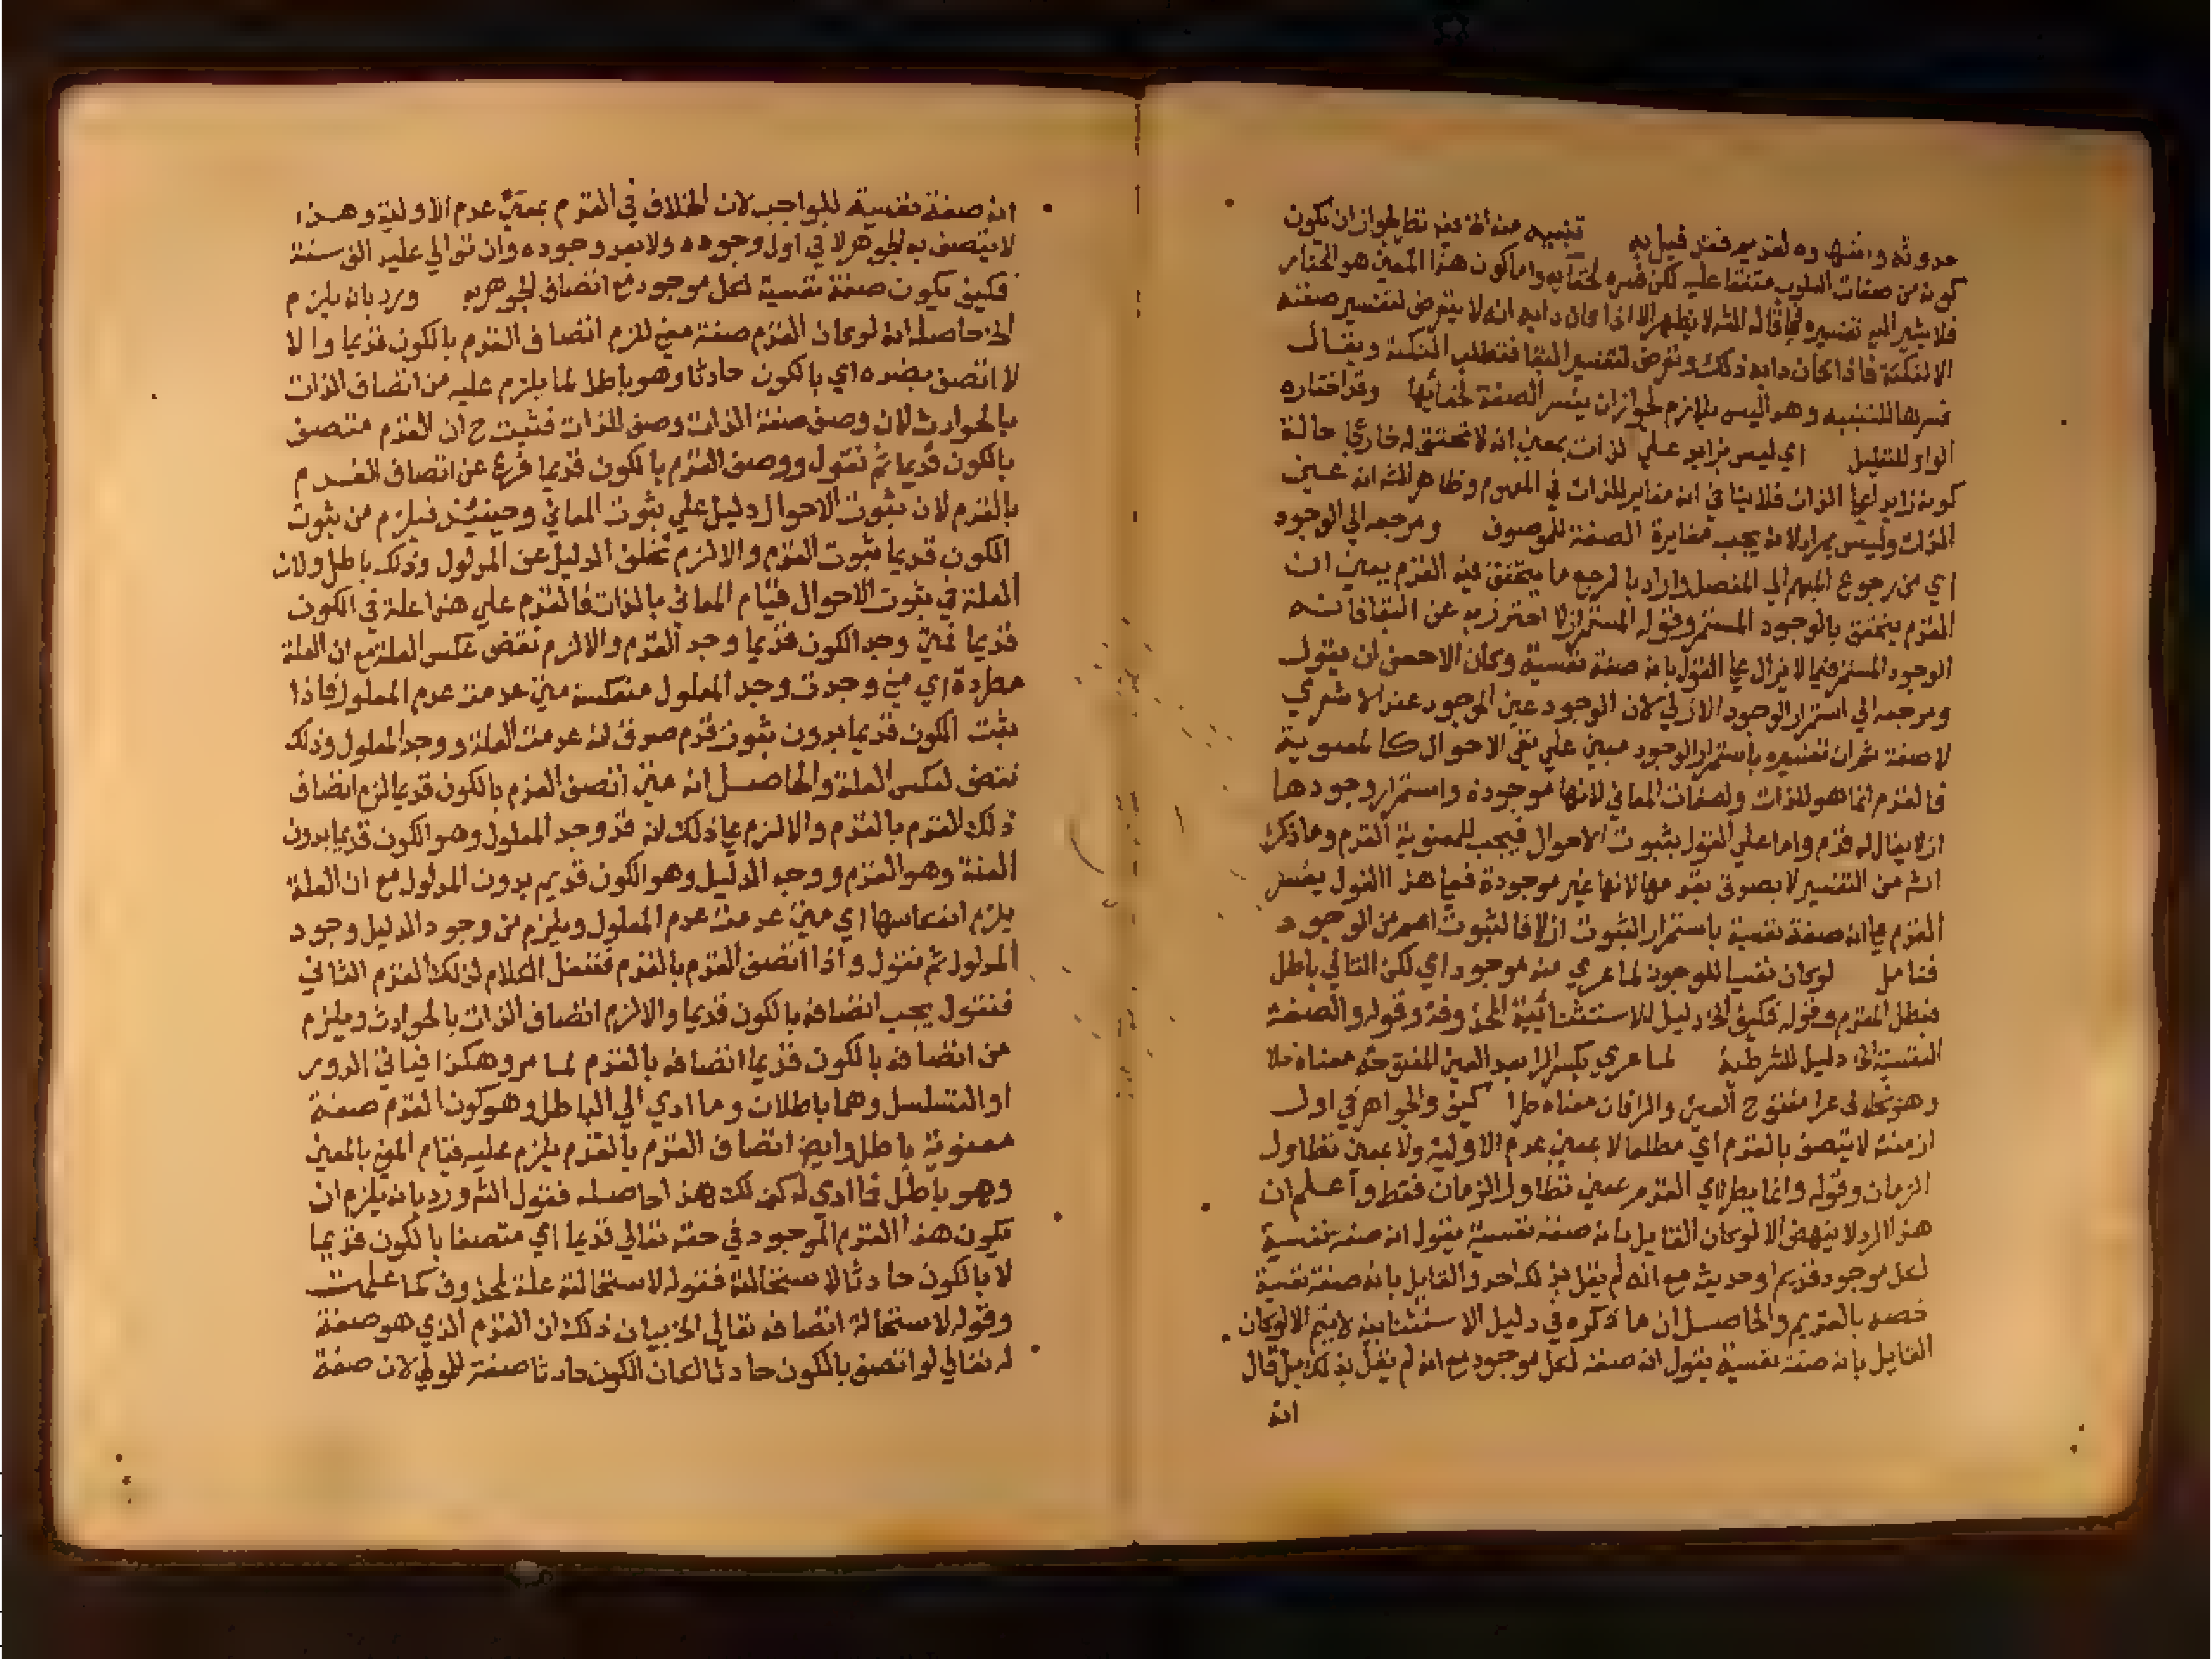 حدوثه وافتقاره لقديم فقد قيل به تنبيه منه انه فيه نظر لجواز ان يكون
كونه من صفات السلوب متفقا عليه لكن فسره لخفايه واما كون هذا المعني هو المختار
فلا يشير اليه تفسيره فما قاله الشه لا يظهر الا اذا كان دابه انه لا يتعرض لتفسير صفته
الا لنكتة فاذا كان دابه ذلك وتعرض لتفسير البقا فتطلب النكتة ويقال
فسرها للتنبيه وهو ليس بلازم لجواز ان يفسر الصفة لخفائها وقد اختاره
الواو للتعليل اي ليس بزايد علي الذات بمعني انه لا تحقق له خارجا حالة
كونه زايدا عما الذات فلا ينافي انه مغاير للذات في المفهوم وظاهر الشه انه عين
الذات وليس مرادا لانه يجب مغايرة الصفة للموصوف ومرجعه الي الوجود
اي من رجوع المبهم الي المفصل واراد بالرجع ما يتحقق فيه القدم بمعني ان
القدم يتحقق بالوجود المستمر وقوله المستمر ازلا احترز به عن البقا فانه
الوجود المستمر فيما لا يزال عما القول بانه صفة نفسية وكان الاحسن ان يقول
ومرجعه الي استمرار الوجود الازلي لان الوجود عين الموجود عند الاشعري
لا صفة ثم ان تفسيره باستمرار الوجود مبني علي نفي الاحوال كالمعنوية
فالقدم انما هو للذات ولصفات المعاني لانها موجودة واستمرار وجودها
ازلا يقال له قدم واما علي القول بثبوت الاحوال فيجب للمعنوية القدم وما ذكره
الشه من التفسير لا يصدق بقدمها لانها غير موجودة فعما هذا القول يفسر
القدم عما انه صفة نفسية باستمرار الثبوت ازلا فالثبوت اعم من الوجود
فتامل لو كان نفسيا للوجود لما عري عنه موجود اي لكن التالي باطل
فبطل المقدم وقوله فكيف الخ دليل للاستثنائية المحذوفة وقوله والصفة
النفسية الخ دليل للشرطية لما عري بكسر الرا بعد العين المفتوحة معناه خلا
وهو بخلاف عرا مفتوح العين والرا فان معناه طرا كيف والجواهر في اول
ازمنته لا يتصف بالقدم اي مطلقا لا بمعني عدم الاولية ولا بمعني تطاول
الزمان وقوله وانما يطرا اي القدم بمعني تطاول الزمان فقط واعلم ان
هذا الرد لا ينهض الا لو كان القايل بانه صفة نفسية يقول انه صفة نفسية
لكل موجود قديم او حديث مع انه لم يقل بذلك احد والقايل بانه صفة نفسية
خصه بالقديم والحاصل ان ما ذكره في دليل الاستثنايية لا يتم الا لو كان
القايل بانه صفة نفسية يقول انه صفة لكل موجود مع انه لم يقل بذلك بل قال
انه
انه صفة نفسية للواجب لان الخلاف في القدم بمعني عدم الاولية وهذا
لا يتصف به الجوهر لا في اول وجوده ولا بعد وجوده وان توالي عليه الف سنة
فكيف يكون صفة نفسية لكل موجود مع اتصاف الجوهر به ورد بانه يلزم
الخ حاصله انه لو كان القدم صفة معني للزم اتصاف القدم بالكون قديما والا
لا اتصف بضده اي بالكون حادثا وهو باطل لما يلزم عليه من اتصاف الذات
بالحوادث لان وصف صفة الذات وصف للذات فثبت ح ان القدم متصف
بالكون قديما ثم نقول ووصف القدم بالكون قديما فرع عن اتصاف القدم
بالقدم لان ثبوت الاحوال دليل علي ثبوت المعاني وحينئذ فيلزم من ثبوت
الكون قديما ثبوت القدم والا لزم تخلف الدليل عن المدلول وذلك باطل ولان
العلة في ثبوت الاحوال قيام المعاني بالذات فالقدم علي هذا علة في الكون
قديما فمتي وجد الكون قديما وجد القدم والا لزم نقض عكس العلة مع ان العلة
مطردة اي متي وجدت وجد المعلول منعكسة متي عدمت عدم المعلول فاذا
ثبت الكون قديما بدون ثبوت قدم صدق انه عدمت العلة ووجد المعلول وذلك
نقض لعكس العلة والحاصل انه متي اتصف القدم بالكون قديما لزم اتصاف
ذلك القدم بالقدم والا لزم عما ذلك انه قد وجد المعلول وهو الكون قديما بدون
العلة وهو القدم ووجد الدليل وهو الكون قديم بدون المدلول مع ان العلة
يلزم انعكاسها اي متي عدمت عدم المعلول ويلزم من وجود الدليل وجود
المدلول ثم نقول واذا اتصف القدم بالقدم فننقل الكلام لذلك القدم الثاني
فنقول يجب اتصافه بالكون قديما والا لزم اتصاف الذات بالحوادث ويلزم
من اتصافه بالكون قديما اتصافه بالقدم لما مر وهكذا فياتي الدور
او التسلسل وهما باطلان وما ادي الي الباطل وهو كون القدم صفة
معنوية باطل وايض اتصاف القدم بالقدم يلزم عليه قيام المعني بالمعني
وهو باطل فما ادي له كذلك هذا حاصله فقول الشه ورد بانه يلزم ان
يكون هذا القدم الموجود في حقه تعالي قديما اي متصفا بالكون قديما
لا بالكون حادثا لاستحالة فقوله لاستحالة علة لمحذوف كما علمت
وقوله لاستحالة اتصافه تعالي الخ بيان ذلك ان القدم الذي هو صفة
له تعالي لو اتصف بالكون حادثا لكان الكون حادثا صفة للمولي لان صفة